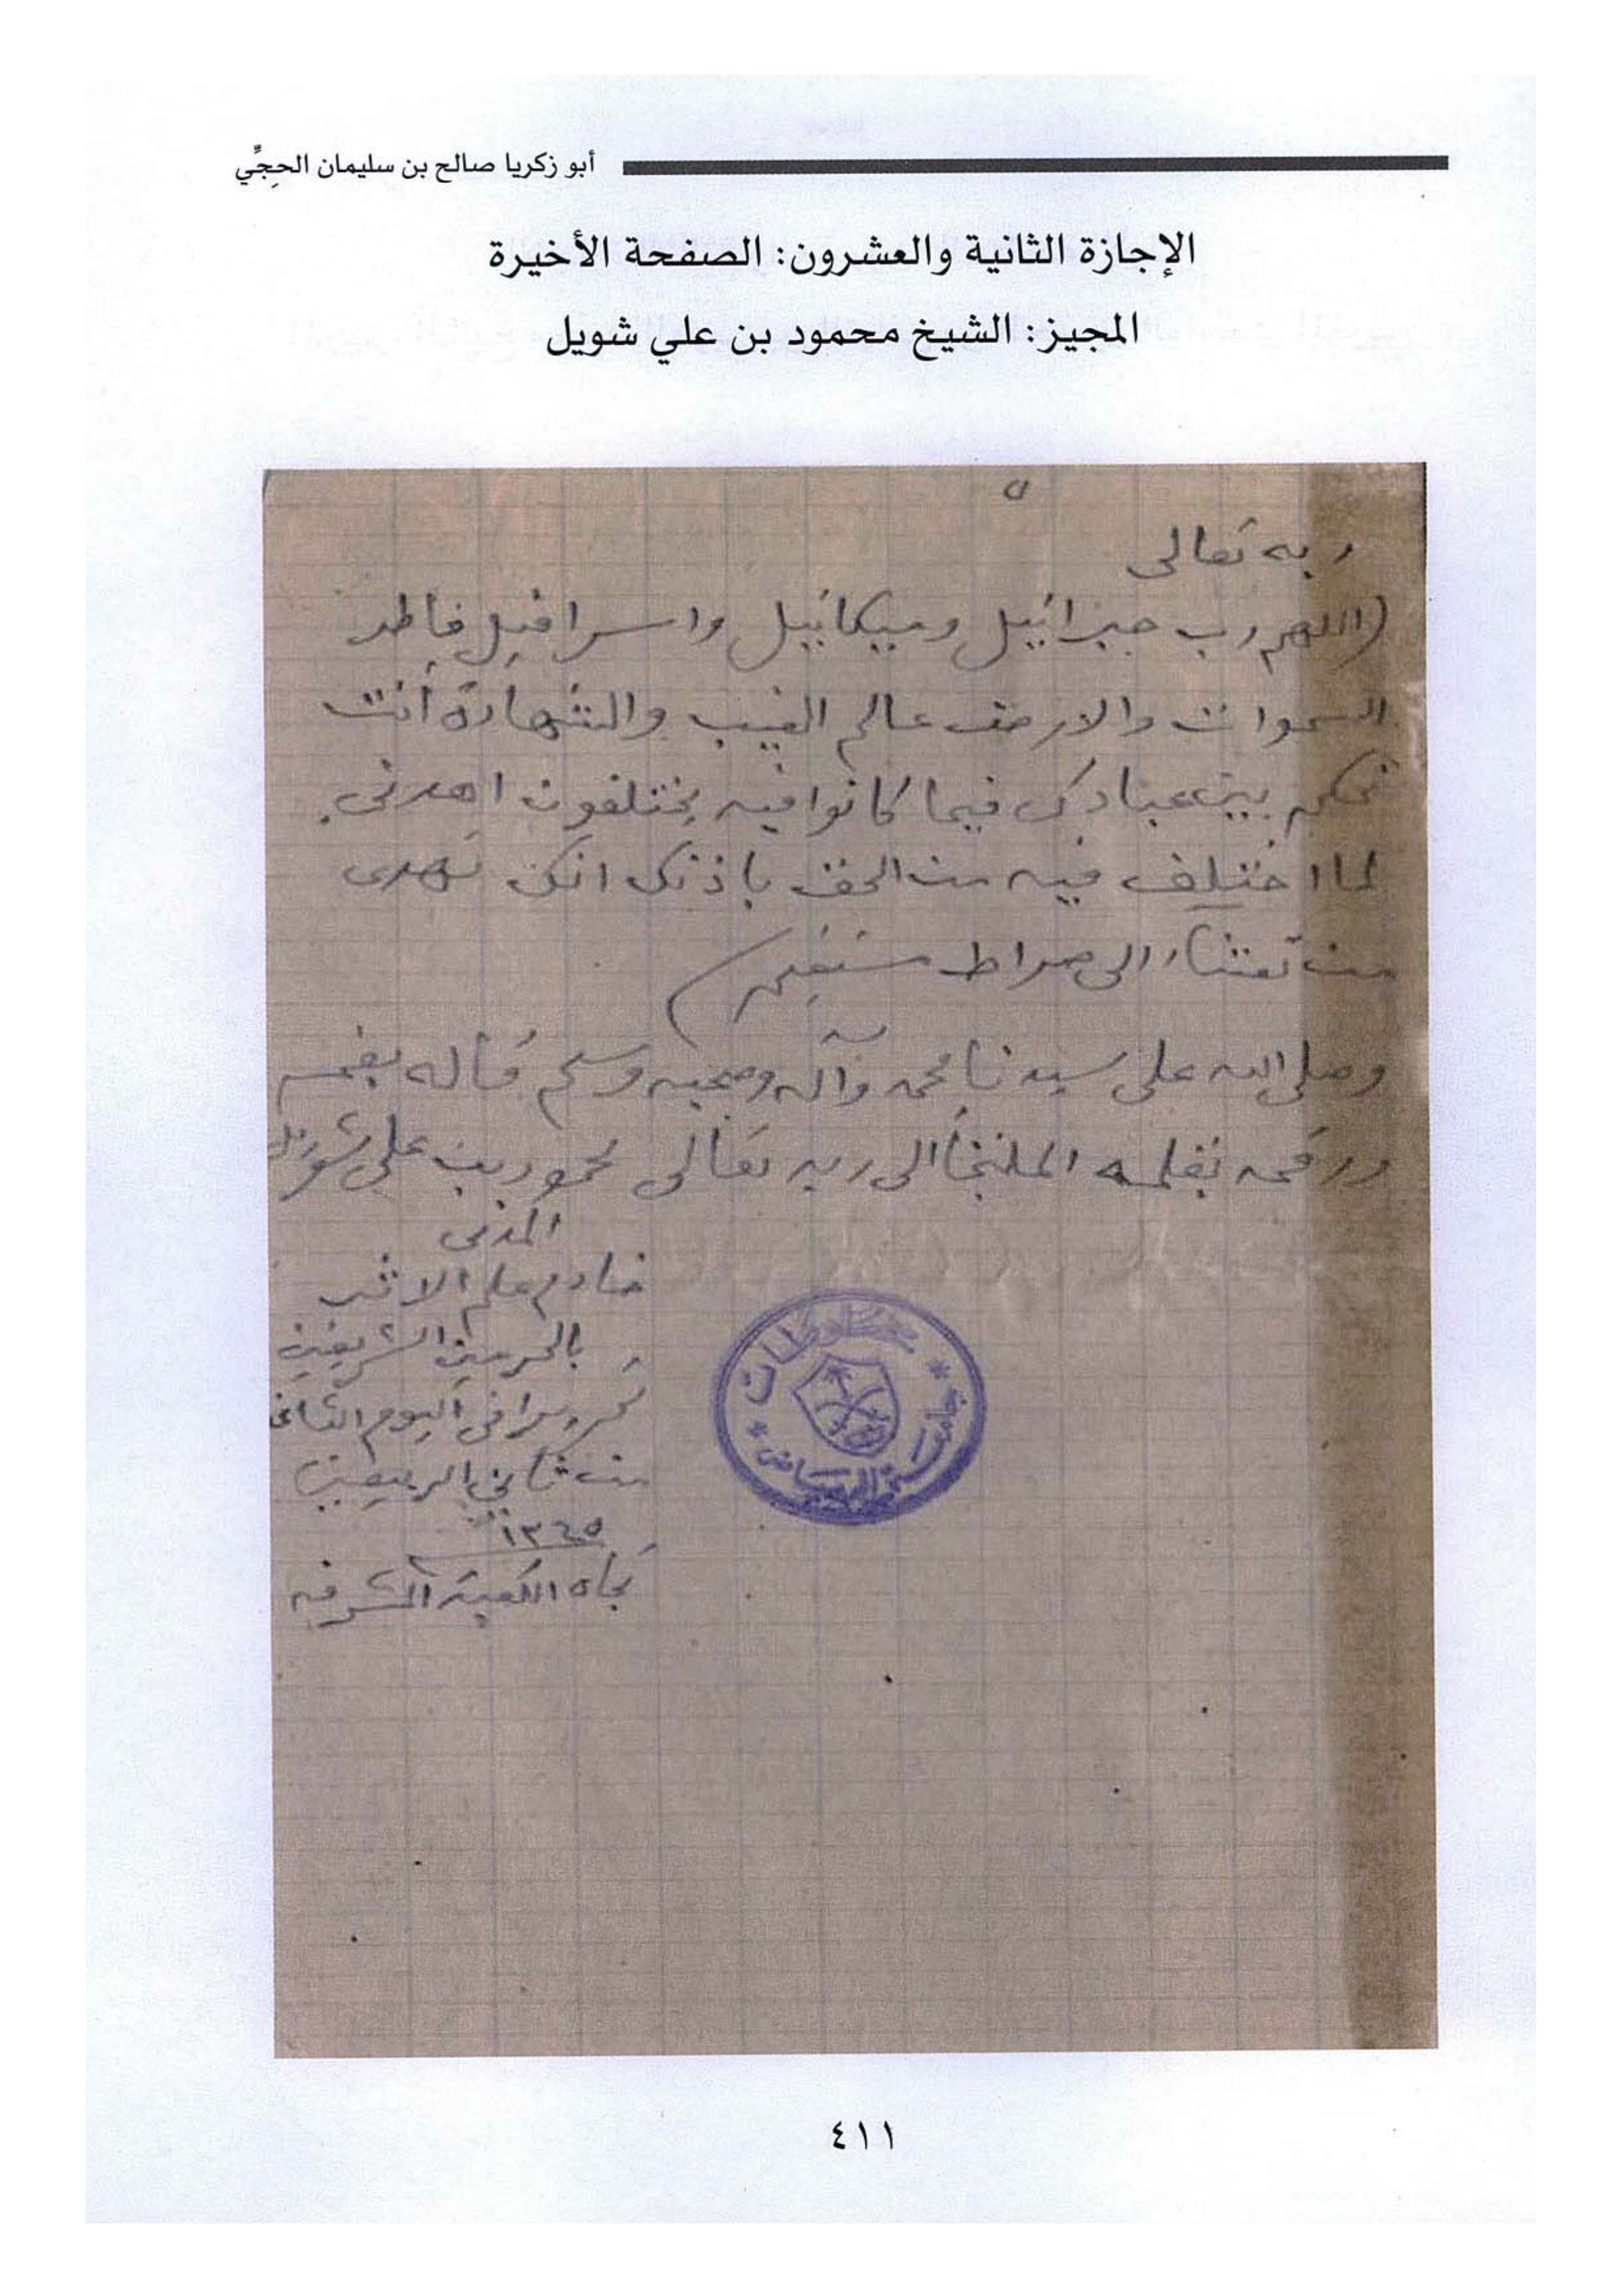 أبو زكريا صالح بن سليمان الحجِّي
الإجازة الثانية والعشرون: الصفحة الأخيرة
المجيز: الشيخ محمود بن علي شويل
٥
ربه تعالى
(اللهم رب جبرائيل وميكائيل واسرافيل فاطر
السموات والارض عالم الغيب والشهادة أنت
تحكم بين عبادك فيما كانوا فيه يختلفون اهدنى
لما اختلف فيه من الحق باذنك انك تهدى
من تشاء الى صراط مستقيم)
وصلى الله على سيدنا محمد وآله وصحبه وسلم قاله بفمه
ورقمه بقلمه الملتجأ الى ربه تعالى محمود بن على شويل
المدنى
خادم علم الاثر
بالحرمين الشريفين
تحريرا فى اليوم الثانى
من ثانى الربيعين
١٣٤٥
تجاه الكعبة المشرفه
جامعة الرياض * مخطوطات *
٤١١